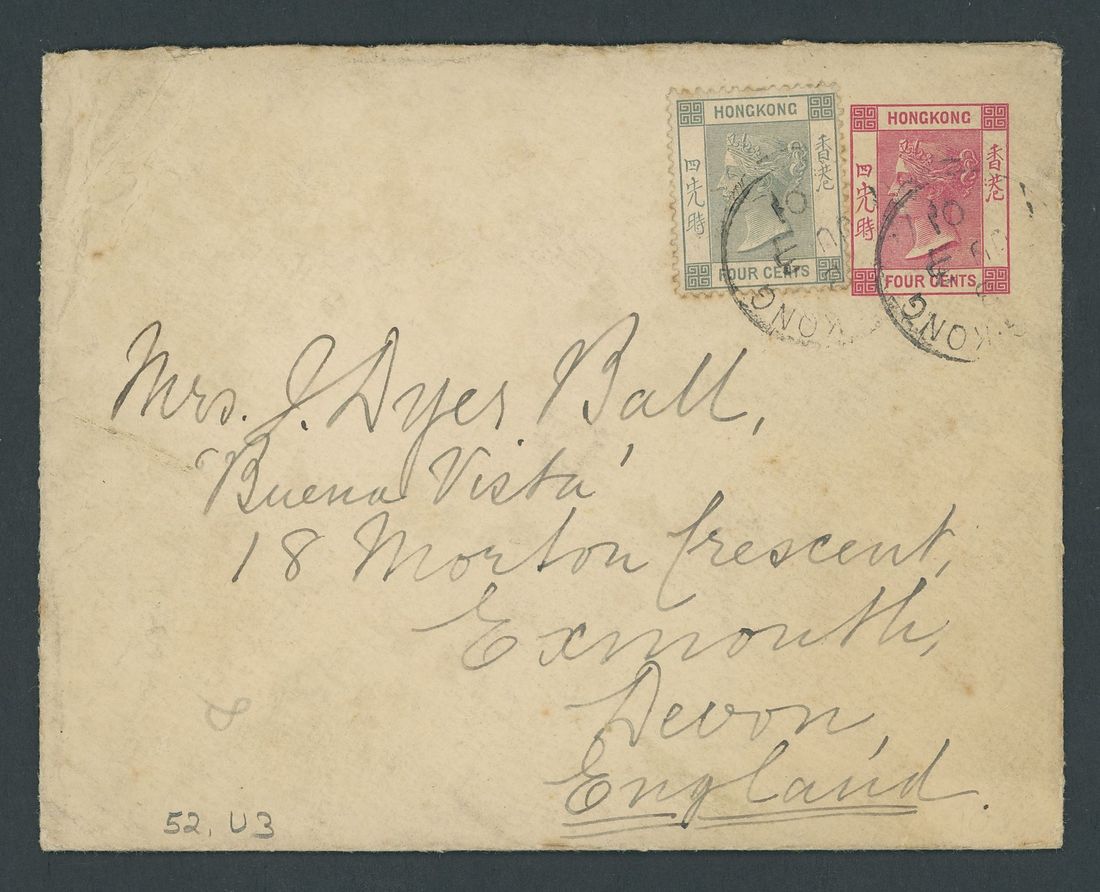 HONGKONG
四先時
香港
FOUR CENTS
HONGKONG
四先時
香港
FOUR CENTS
KONG
KONG
Mrs. J. Dyer Ball,
"Buena Vista"
18 Morton Crescent,
Exmouth,
Devon,
England.
52, U3